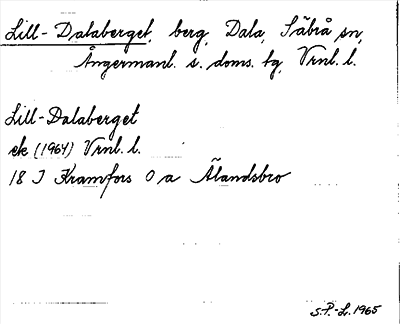 Lill-Dalaberget, berg, Dala, Säbrå sn,
Ångermanl. s. doms. tg, Vrnl. l.
Lill-Dalaberget
ek (1964) Vrnl. l.
18 J Kramfors 0 a Älandsbro
S.P.-L. 1965